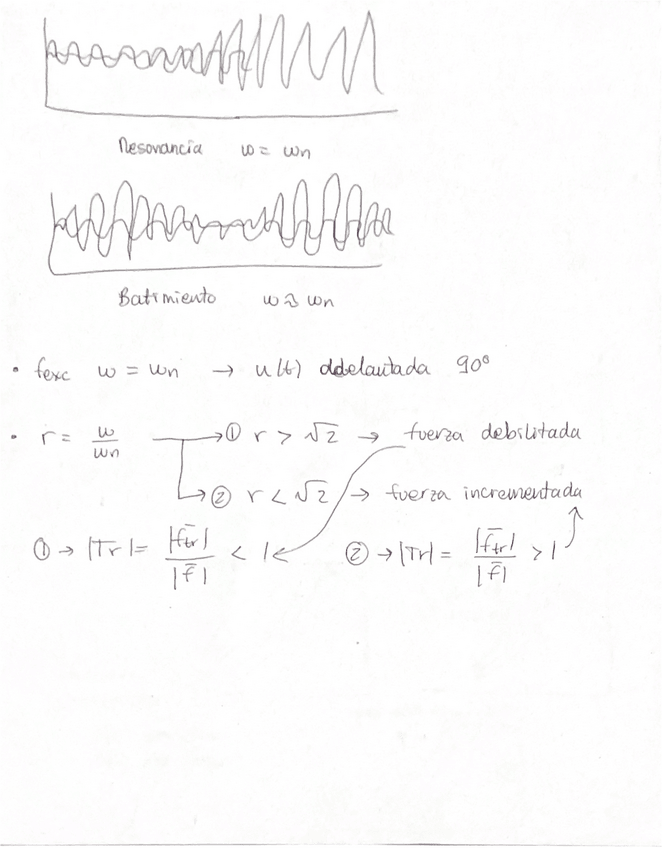 Resonancia w = wn
Batimiento w ≈ wn
• fexc w = wn → u(t) adelantada 90°
• r = w/wn → ① r > √2 → fuerza debilitada
→ ② r < √2 → fuerza incrementada
① → |Tr| = |f̄tr|/|f̄| < 1 ② → |Tr| = |f̄tr|/|f̄| > 1